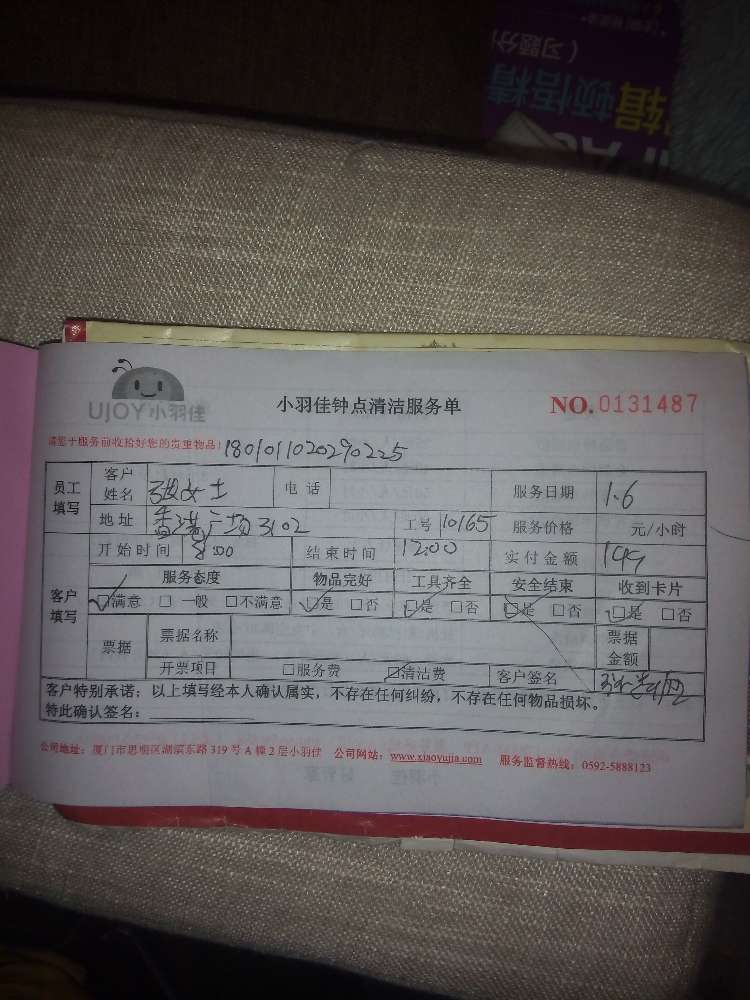 (习题分
辑顿悟精
UJOY小羽佳
小羽佳钟点清洁服务单
NO.0131487
请您于服务前收拾好您的贵重物品! 180101020290225
员工填写 客户姓名 张女士 电话 服务日期 1.6
地址 香港广场3102 工号 10165 服务价格 元/小时
客户填写 开始时间 8:00 结束时间 12:00 实付金额 149
服务态度 物品完好 工具齐全 安全结束 收到卡片
☑满意 □一般 □不满意 ☑是 □否 ☑是 □否 ☑是 □否 ☑是 □否
票据 票据名称 票据金额
开票项目 □服务费 ☑清洁费 客户签名
客户特别承诺：以上填写经本人确认属实，不存在任何纠纷，不存在任何物品损坏。
特此确认签名：
公司地址：厦门市思明区湖滨东路319号A幢2层小羽佳 公司网站：www.xiaoyujia.com 服务监督热线：0592-5888123